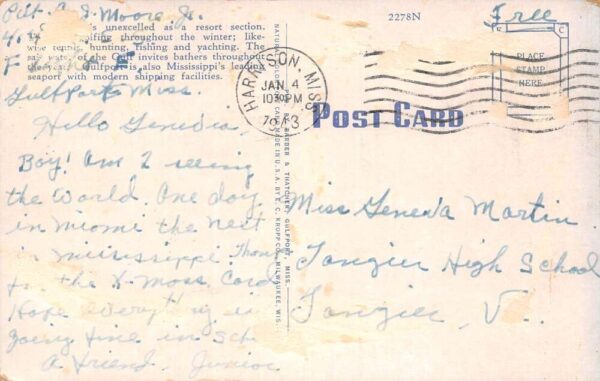 Pvt. A. S. Moore Jr.
unexcelled as a resort section.
golfing throughout the winter; like-
wise tennis, hunting, fishing and yachting. The
water of the Gulf invites bathers throughout
the year. Gulfport is also Mississippi's leading
seaport with modern shipping facilities.
Gulfport, Miss.
Hello Geneva,
Boy! am I seeing
the world. One day
in Miomi the next
in Mississippi. Thanx
for the X-mass Card
Hope everything is
going fine in sch.
A friend, Junior
NATURAL COLOR
BARBER & THATCHER, GULFPORT, MISS.
CARD MADE IN U.S.A. BY E. C. KROPP CO., MILWAUKEE, WIS.
2278N
Free
PLACE
STAMP
HERE
HARRISON, MISS.
JAN 4
10 30 PM
POST CARD
Miss Geneva Martin
Tangier High School
Tangier, V.